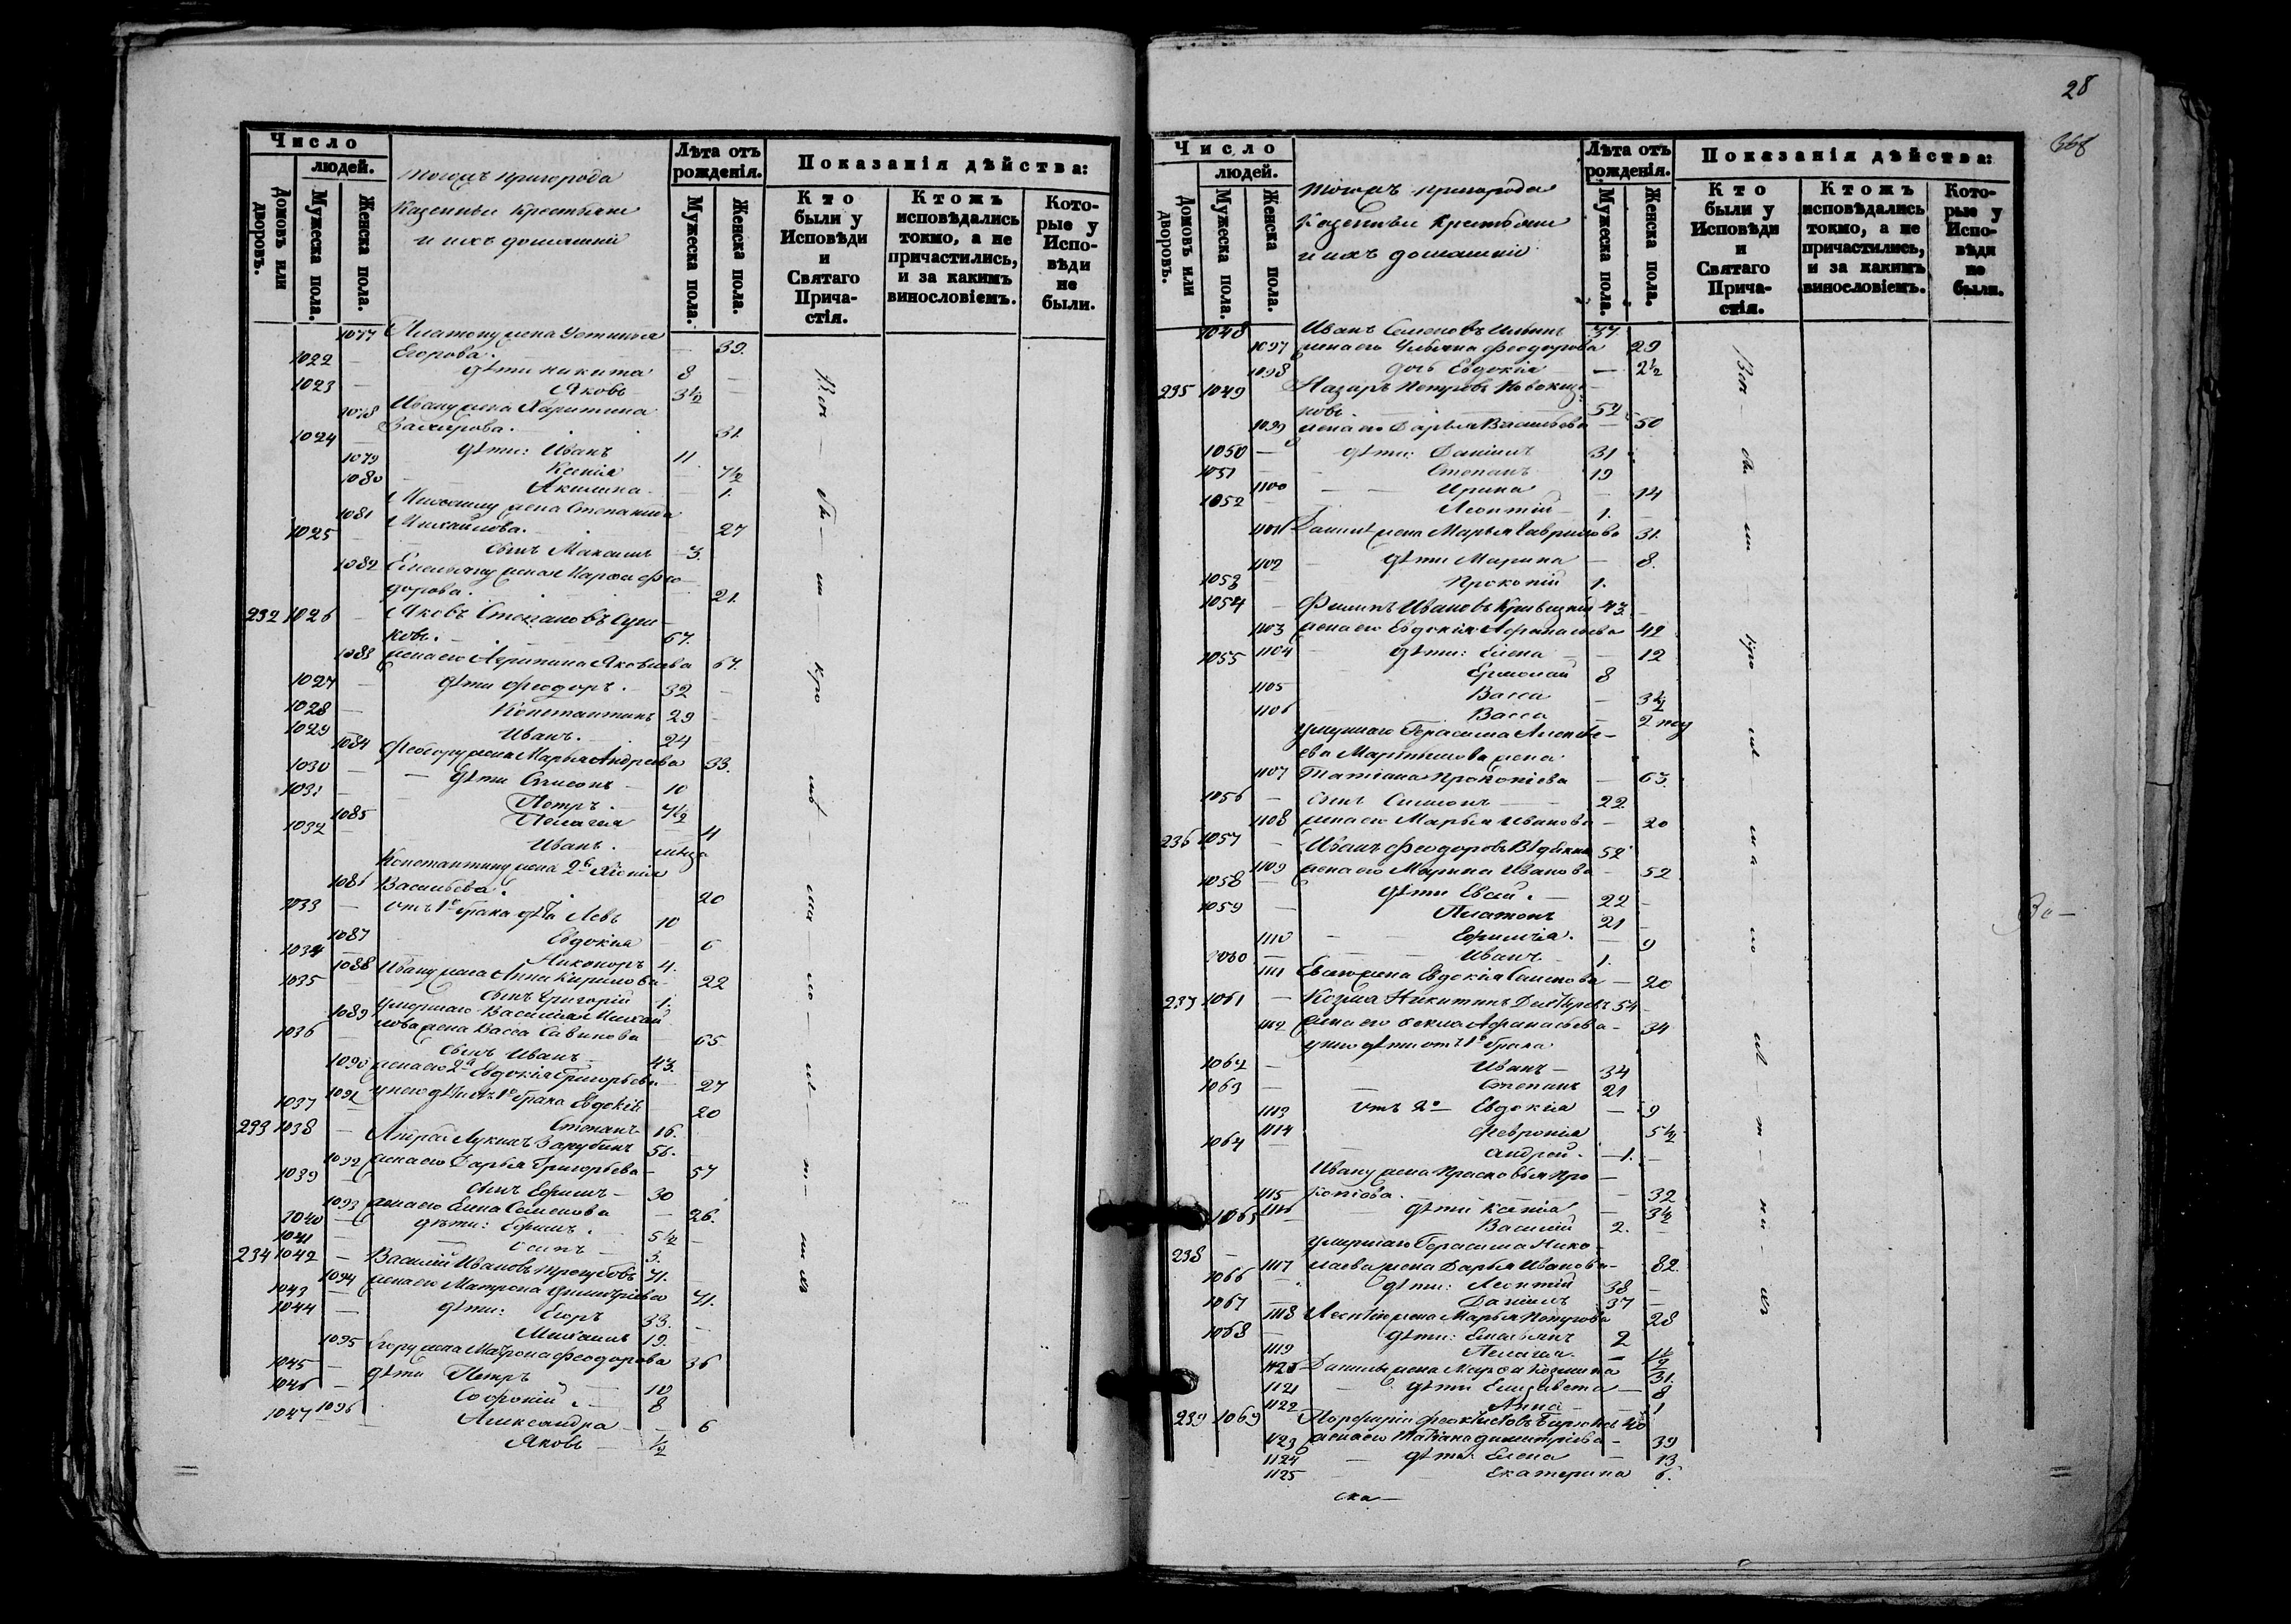 Число
людей.
Домовъ или дворовъ.
Мужеска пола.
Женска пола.
тогожъ пригорода
Казенныи Крестьяне
и ихъ домашніи
Лѣта отъ рожденія.
Мужеска пола.
Женска пола.
Показанія дѣйства:
Кто были у Исповѣди и Святаго Причастія.
Ктожъ исповѣдались токмо, а не причастились, и за какимъ винословіемъ.
Которые у Исповѣди не были.
1077 Платону жена Устинья
Егорова. — 39.
1022 — дѣти Никита 8 —
1023 — Яковъ 3½ —
1078 Ивану жена Харитина
Захарова. 31.
1024 — дѣти: Иванъ 11
1079 Ксенія 7½
1080 Акилина — 1.
Михаилу жена Степанида
1081 Михайлова. 27
1025 — сынъ Максимъ 3.
1082 Емельяну жена Марфа Фео-
дорова. 21.
232 1026 — Яковъ Степановъ Суш-
ковъ. — 67.
1083 жена его Агрипина Яковлева 67.
1027 — дѣти Феодоръ. — 32 —
1028 — Константинъ 29 —
1029 Иванъ. 24
1084 Феодору жена Марья Андреева 33.
1030 — дѣти Симеонъ — 10
1031 — Петръ. — 7½
1085 Пелагея — 4
1032 — Иванъ. —
Константину жена 2я Ксенія
1086 Васильева. 20
1033 — отъ 1го брака дѣти Левъ 10
1087 Евдокия — 6
1034 Никоноръ 4.
1088 Ивану жена Анна Кирилова — 22
1035 — сынъ Григорій 1.
умершаго Василья Михай
1089 лова жена Васса Савинова 65
1036 сынъ Иванъ — 43.
1090 жена его 2я Евдокія Григорьева 27
1091 у него дѣти отъ 1го брака Евдокія 20
1037 Степанъ 16.
233 1038 — Андрей Лукинъ Зарубинъ 56.
1092 жена его Дарья Григорьева — 57
1039 — сынъ Ефимъ — 30
1093 жена его Елена Семенова — 26.
1040 — дѣти: Ефимъ. 5½ —
1041 — Осипъ — 3.
234 1042 — Василій Ивановъ 71.
1094 жена его Матрона Димитріева 71.
1043 — дѣти: Егоръ 33.
1044 — Михаилъ 19.
1095 Егору жена Матрона Феодорова 36
1045 — дѣти Петръ 10
1046 — Софроній 8
1096 Александра — 6
1047 Яковъ — ½
Вси — бы — ли —
28
368
Число
людей.
Домовъ или дворовъ.
Мужеска пола.
Женска пола.
тогожъ пригорода
Казенныи Крестьяне
и ихъ домашніи
Лѣта отъ рожденія.
Мужеска пола.
Женска пола.
Показанія дѣйства:
Кто были у Исповѣди и Святаго Причастія.
Ктожъ исповѣдались токмо, а не причастились, и за какимъ винословіемъ.
Которые у Исповѣди не были.
1048 Иванъ Семеновъ Ильинъ 37.
1097 жена его Ульяна Феодорова 29
1098 дочь Евдокія — 2½
235 1049 Назаръ Петровъ
52
1099 жена его Дарья Васильева — 50
1050 — дѣти: Даніилъ 31
1051 — Степанъ 19
1100 — Ирина — 14
1052 — Леонтій — 1. —
1101 Даниилу жена Марья Гаврилова 31.
1102 — дѣти Марина — 8.
1053 — Прокопій 1.
1054 — Филипъ Ивановъ Кривицкій 43. —
1103 жена его Евдокія Афанасьева 42
1104 дѣти: Елена — 12
1055 Ермолай 8
1105 Васса — 3½
1106 Васса — 2 нед
умершаго Герасима Алексѣ-
ева Мартынова жена
1107 Татіана Прокопіева — 63.
1056 — сынъ Симионъ — 22
1108 жена его Марья Иванова — 20
236 1057 — Иванъ Феодоровъ 52
1109 жена его Марина Иванова — 52
1058 — дѣти Евсей. — 22 —
1059 — Платонъ 21
1110 — Ефимія. — 9
1060 — Иванъ 1.
1111 Евсею жена Евдокія Семенова — 20
237 1061 — Козма Никитинъ 54
1112 жена его Фекла Афанасьева — 34
у него дѣти отъ 1го брака
1062 — Иванъ — 34
1063 — Степанъ 21
1113 отъ 2го — Евдокія — 9
1114 Февронія 5½
1064 — Андрей. — 1. —
Ивану жена Прасковья Про —
1115 копіева. — 32
1116 дѣти Ксенія — 3½
1065 — Василій 2. —
умершаго Герасима Нико —
238 — 1117 лаева жена Дарья Иванова — 82.
1066 — дѣти: Леонтій 38 —
1067 — Даніилъ 37 —
1118 Леонтію жена Марья Петрова 28
1068 — дѣти: Емельянъ 2
1119 Пелагея. — 1½
1120 Даниилу жена Марфа Козмина 31.
1121 дѣти Елизавета — 8
1122 Анна — 1
239 1069 Порфирій Феоктистовъ 40
1123 жена его Татіана Димитріева — 39
1124 — дѣти: Елена — 13
1125 Екатерина 6.
Вси — бы — ли —
ска —